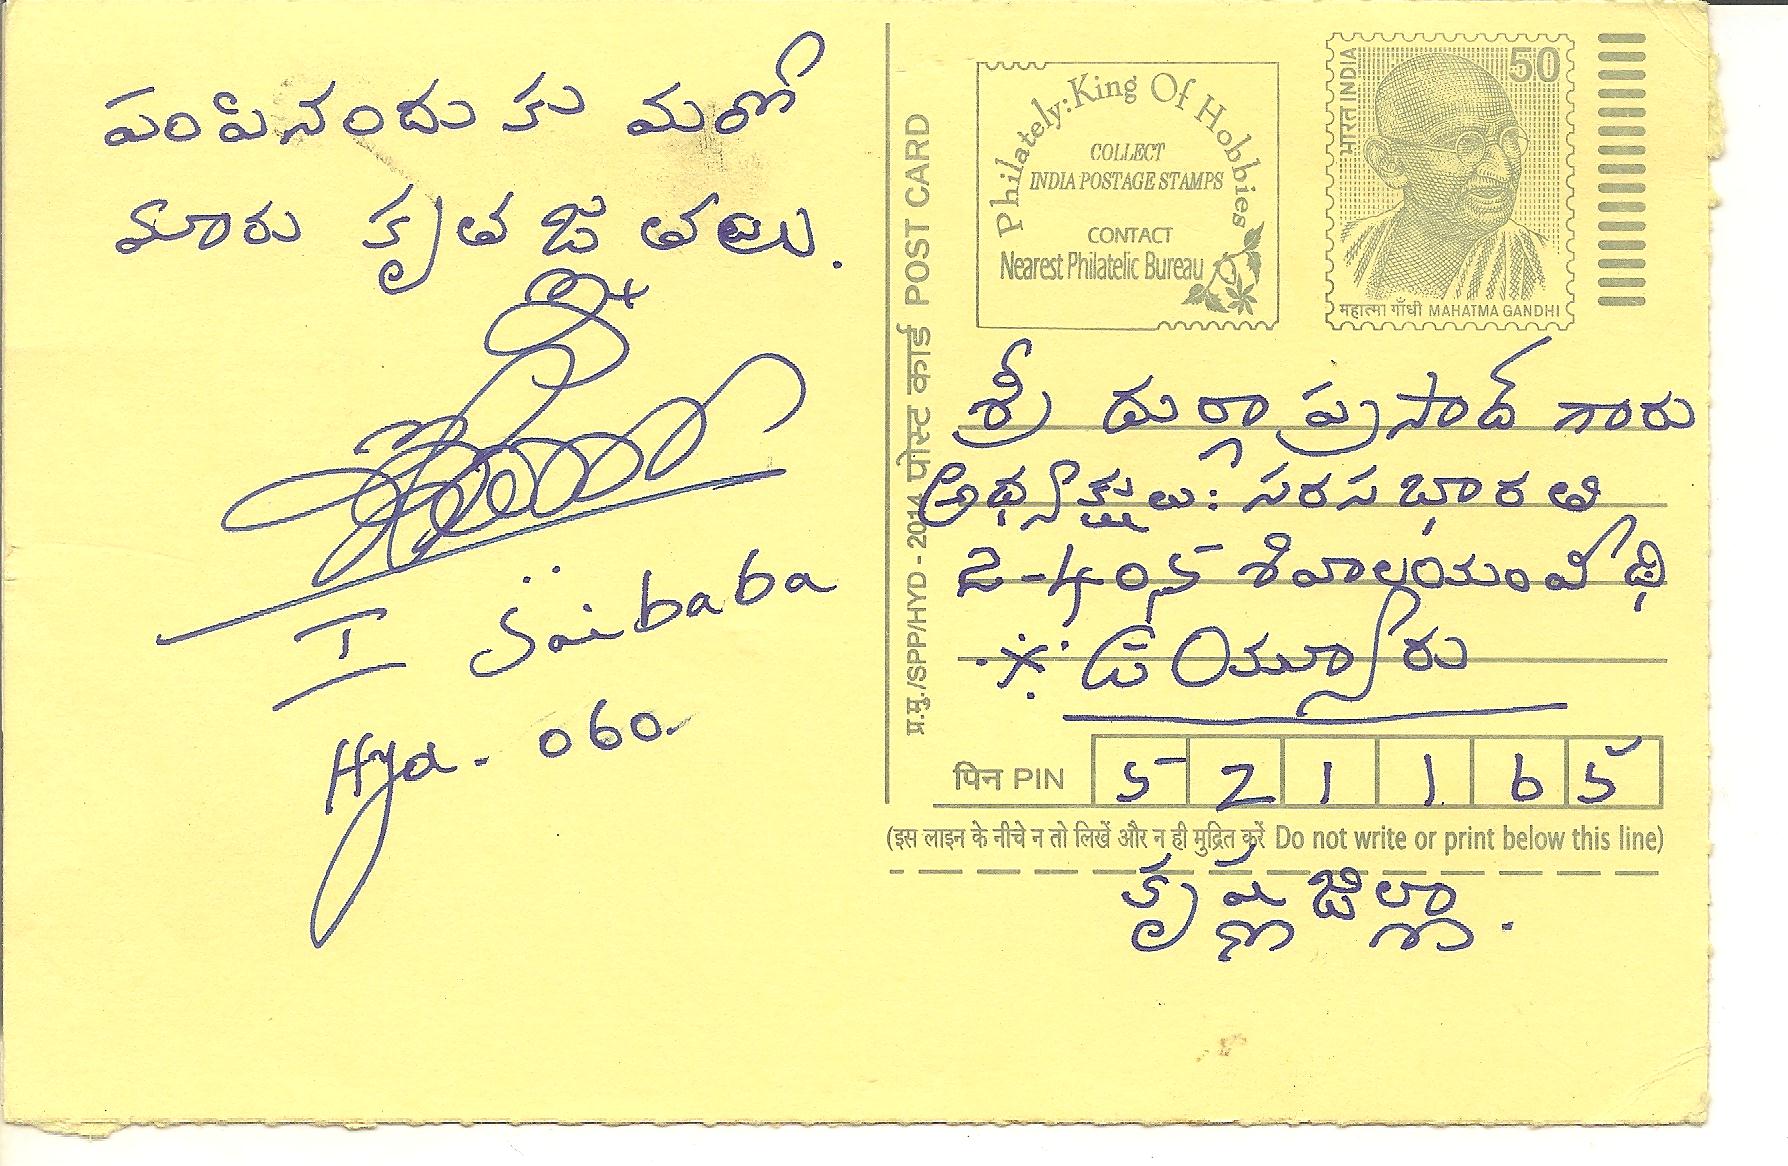 పంపినందుకు మరో
మారు కృతజ్ఞతలు.
I Saibaba
Hyd - 060.
Philately: King Of Hobbies
COLLECT
INDIA POSTAGE STAMPS
CONTACT
Nearest Philatelic Bureau
भारत INDIA
50
महात्मा गाँधी MAHATMA GANDHI
प्र.मु./SPP/HYD - 2014 पोस्ट कार्ड POST CARD
శ్రీ దుర్గాప్రసాద్ గారు
అధ్యక్షులు: సరసభారతి
2-405 శివాలయం వీధి
ఉయ్యూరు
पिन PIN 5 2 1 1 6 5
(इस लाइन के नीचे न तो लिखें और न ही मुद्रित करें Do not write or print below this line)
కృష్ణ జిల్లా.